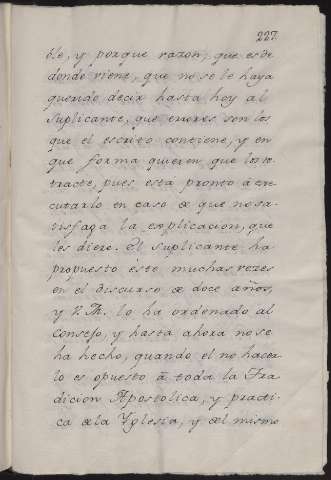 227
ble, y porque razon, que es de
donde viene, que no se le haya
querido decir hasta hoy al
Suplicante, que errores son los
que el escrito contiene, y en
que forma quieren que los re
tracte, pues está pronto á exe
cutarlo en caso de que no sa-
tisfaga la explicacion, que
les diere. El Suplicante ha
propuesto éste muchas vezes
en el discurso de doce años,
y V. M. lo ha ordenado al
Consejo, y hasta ahora no se
ha hecho, quando el no hacer
lo es opuesto á toda la Tra
dicion Apostolica, y practi
ca de la Yglesia, y del mismo